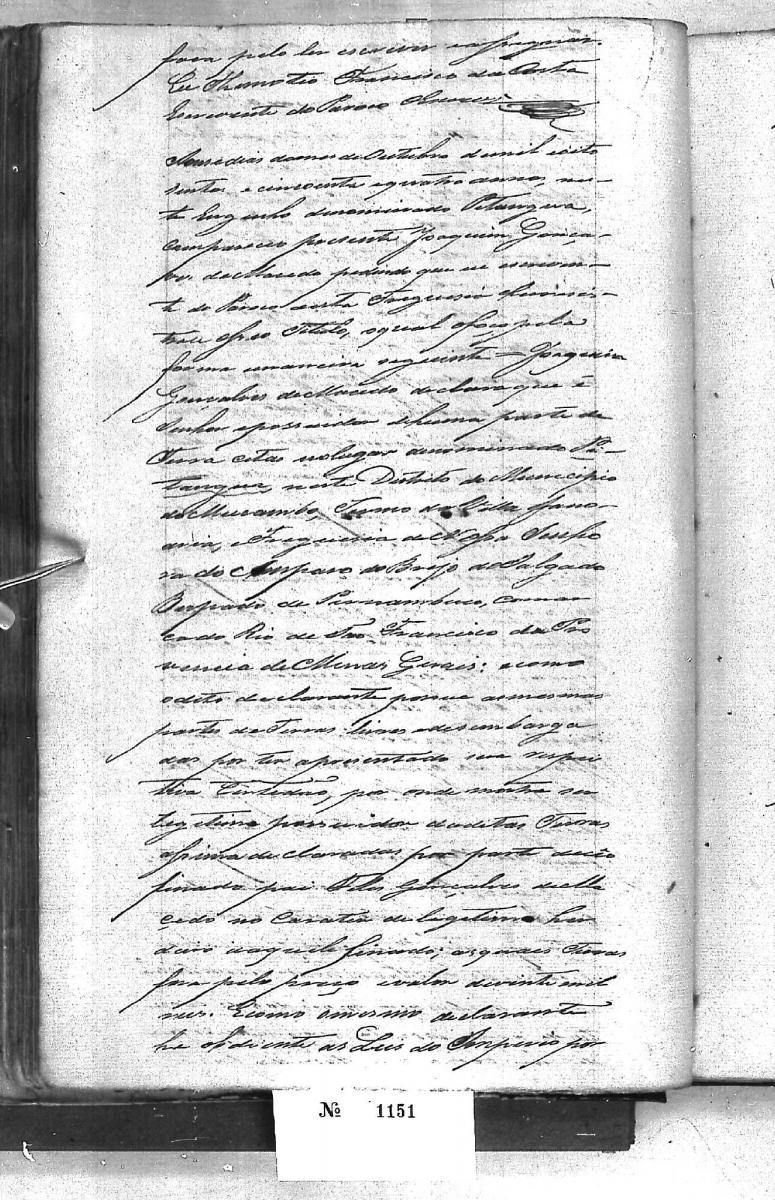 fora pelo ler escrever
Eu Francisco da Costa
Escrevente do Paroco
dias do mes de Outubro de mil oito
sentos e cincoenta e quatro annos, nes-
te denominado Pitangua,
compareceo presente Joaquim Gonça-
de Macedo pedindo que eu escreven-
te do Paroco desta Freguesia
Titulo, o qual o faço pela
forma e maneira seguinte = Joaquim
Gonçalves de Macedo declara que é
Senhor e possuidor de huma parte de
Terra citas no lugar denominado Pi-
tangua, neste Distrito do Municipio
do Mucambo, Termo da Villa Janu-
aria, e Freguesia de Nossa Senho
ra do Amparo do Brejo do Salgado
Bispado de Pernambuco, comar
ca do Rio de São Francisco da Pro
vincia de Minas Geraes: e como
o dito declarante possue as mesmas
partes de Terras livres e desembarga
das por ter apresentado seu respec
tiva por onde mostra ser
legitimo possuidor da ditas Terras
assima declaradas por parte de seo
finado pai Gonçalves de Ma
cedo no carater de legitimo her
deiro daquele finado; as quaes Terras
fora pelo preço e valor de vinte mil
reis. E como o mesmo declarante
he obidiente as Leis do Imperio por
Nº 1151